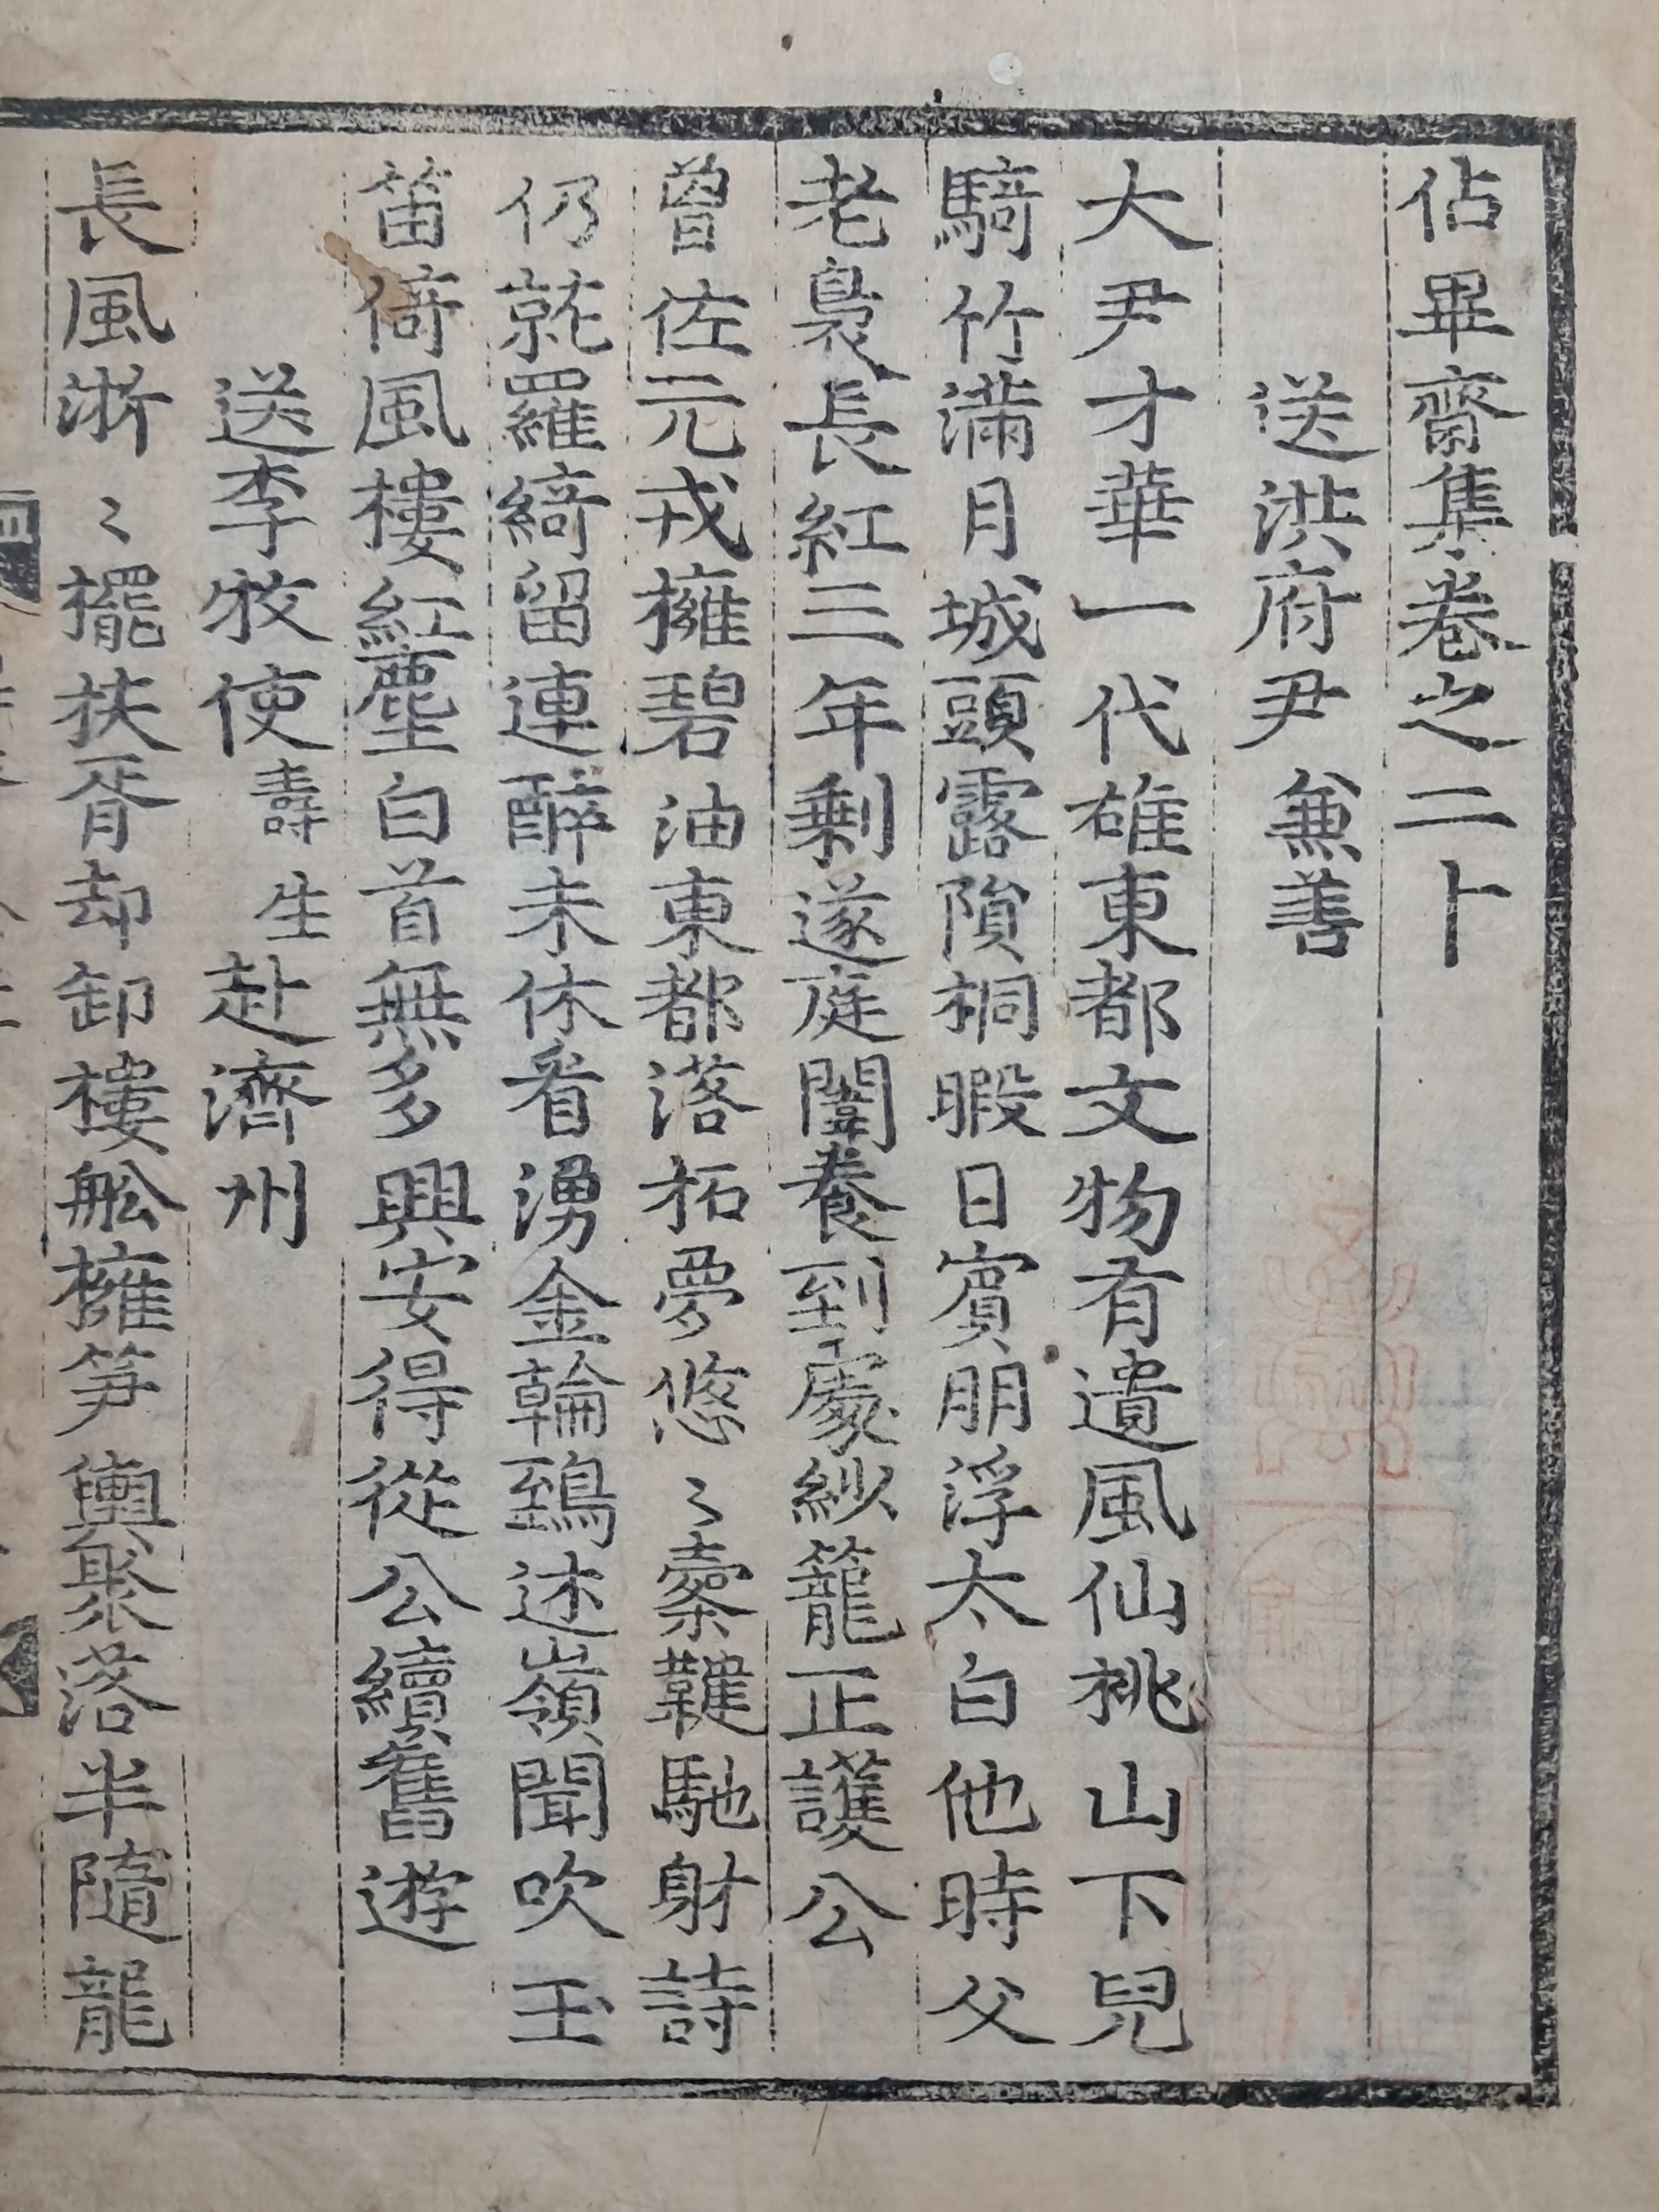 佔畢齋集卷之二十
送洪府尹 兼善
大尹才華一代雄東都文物有遺風仙桃山下兒
騎竹滿月城頭露隕桐暇日賓朋浮太白他時父
老裊長紅三年剩遂庭闈養到處紗籠正護公
曾佐元戎擁碧油東都落拓夢悠〻櫜鞬馳射詩
仍就羅綺留連醉未休看湧金輪鵄述嶺聞吹玉
笛倚風樓紅塵白首無多興安得從公續舊遊
送李牧使 壽生 赴濟州
長風淅〻擺扶胥却卸樓舩擁笋輿聚落半隨龍